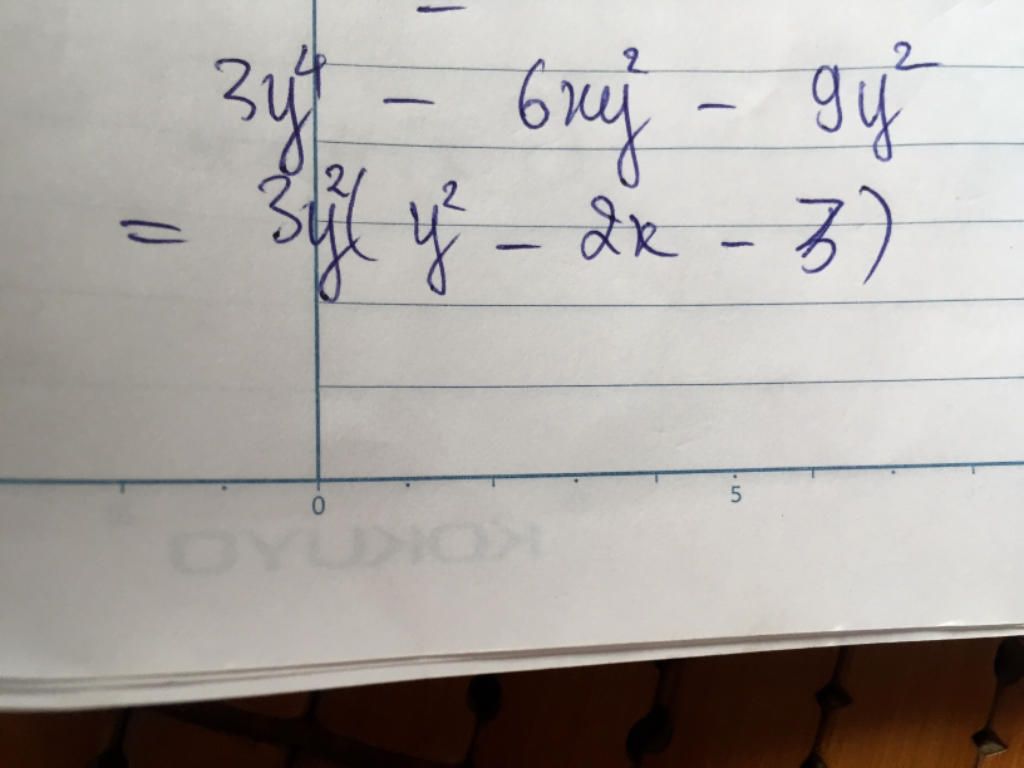 3y⁴ – 6xy² – 9y²
= 3y²( y² – 2x – 3)
0 5
KOKUYO